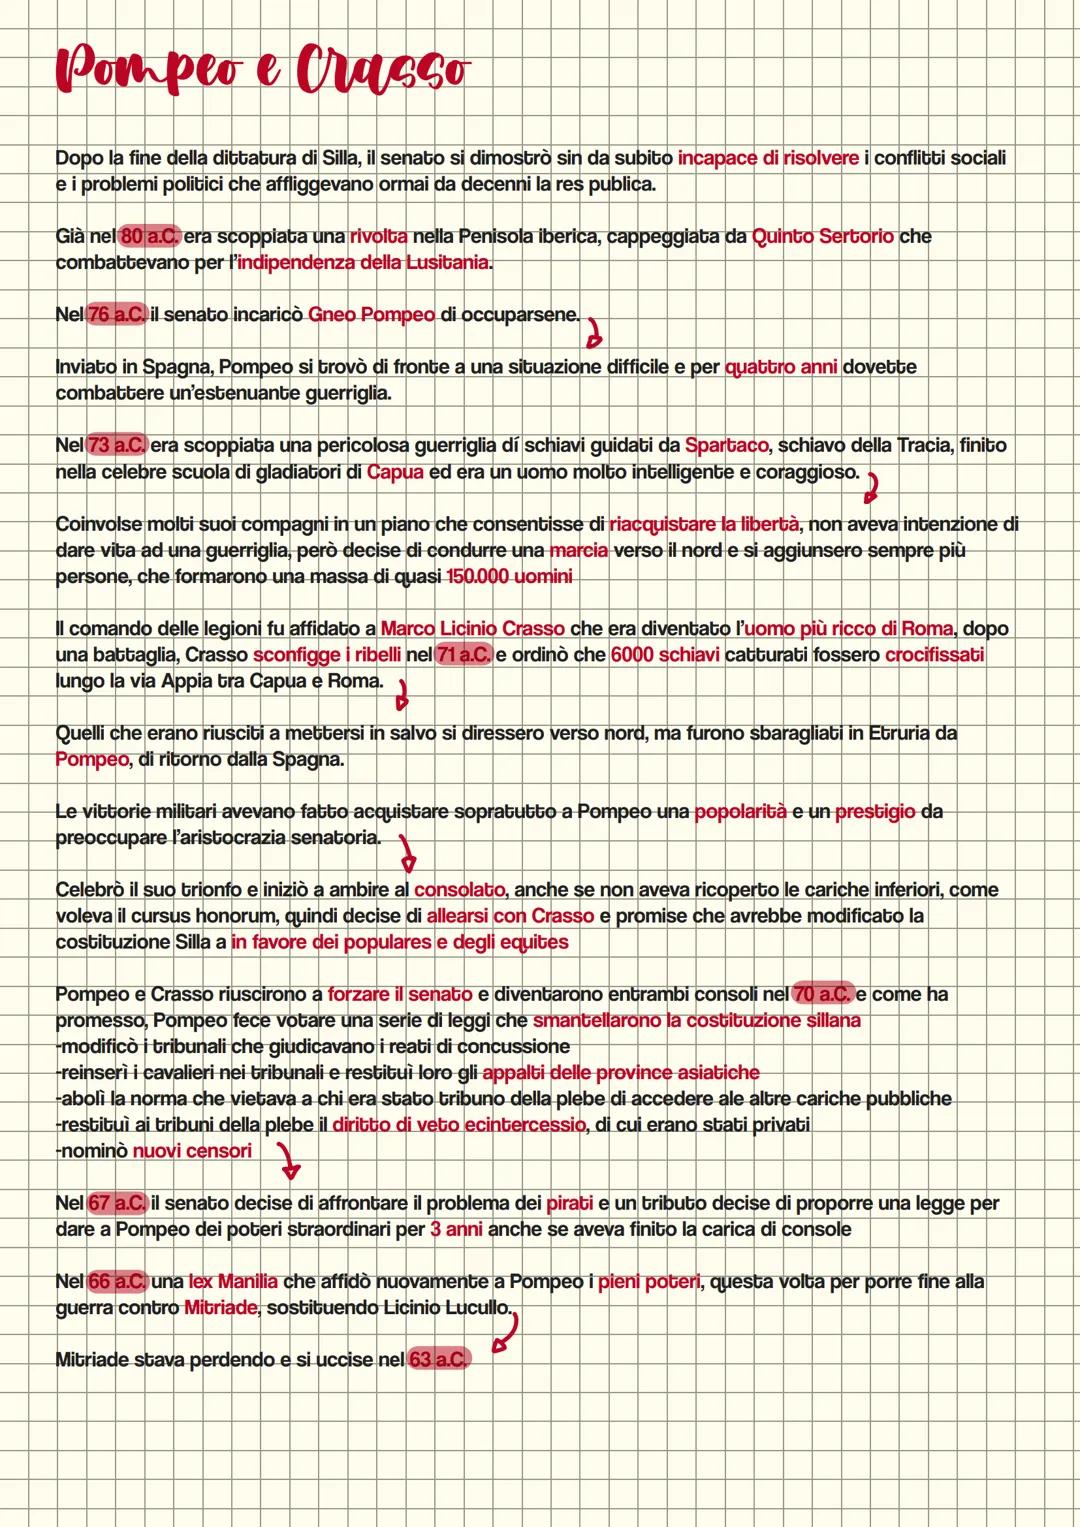 Pompeo e Crasso
Dopo la fine della dittatura di Silla, il senato si dimostrò sin da subito incapace di risolvere i conflitti sociali
e i problemi politici che affliggevano ormai da decenni la res publica.
Già nel 80 a.C. era scoppiata una rivolta nella Penisola iberica, cappeggiata da Quinto Sertorio che
combattevano per l'indipendenza della Lusitania.
Nel 76 a.C. il senato incaricò Gneo Pompeo di occuparsene.
Inviato in Spagna, Pompeo si trovò di fronte a una situazione difficile e per quattro anni dovette
combattere un'estenuante guerriglia.
Nel 73 a.C. era scoppiata una pericolosa guerriglia dí schiavi guidati da Spartaco, schiavo della Tracia, finito
nella celebre scuola di gladiatori di Capua ed era un uomo molto intelligente e coraggioso.
Coinvolse molti suoi compagni in un piano che consentisse di riacquistare la libertà, non aveva intenzione di
dare vita ad una guerriglia, però decise di condurre una marcia verso il nord e si aggiunsero sempre più
persone, che formarono una massa di quasi 150.000 uomini
Il comando delle legioni fu affidato a Marco Licinio Crasso che era diventato l'uomo più ricco di Roma, dopo
una battaglia, Crasso sconfigge i ribelli nel 71 a.C. e ordinò che 6000 schiavi catturati fossero crocifissati
lungo la via Appia tra Capua e Roma.
Quelli che erano riusciti a mettersi in salvo si diressero verso nord, ma furono sbaragliati in Etruria da
Pompeo, di ritorno dalla Spagna.
Le vittorie militari avevano fatto acquistare sopratutto a Pompeo una popolarità e un prestigio da
preoccupare l'aristocrazia senatoria.
Celebrò il suo trionfo e iniziò a ambire al consolato, anche se non aveva ricoperto le cariche inferiori, come
voleva il cursus honorum, quindi decise di allearsi con Crasso e promise che avrebbe modificato la
costituzione Silla a in favore dei populares e degli equites
Pompeo e Crasso riuscirono a forzare il senato e diventarono entrambi consoli nel 70 a.C. e come ha
promesso, Pompeo fece votare una serie di leggi che smantellarono la costituzione sillana
-modificò i tribunali che giudicavano i reati di concussione
-reinserì i cavalieri nei tribunali e restituì loro gli appalti delle province asiatiche
-abolì la norma che vietava a chi era stato tribuno della plebe di accedere ale altre cariche pubbliche
-restituì ai tribuni della plebe il diritto di veto ecintercessio, di cui erano stati privati
-nominò nuovi censori
Nel 67 a.C. il senato decise di affrontare il problema dei pirati e un tributo decise di proporre una legge per
dare a Pompeo dei poteri straordinari per 3 anni anche se aveva finito la carica di console
Nel 66 a.C. una lex Manilia che affidò nuovamente a Pompeo i pieni poteri, questa volta per porre fine alla
guerra contro Mitriade, sostituendo Licinio Lucullo.
Mitriade stava perdendo e si uccise nel 63 a.C.